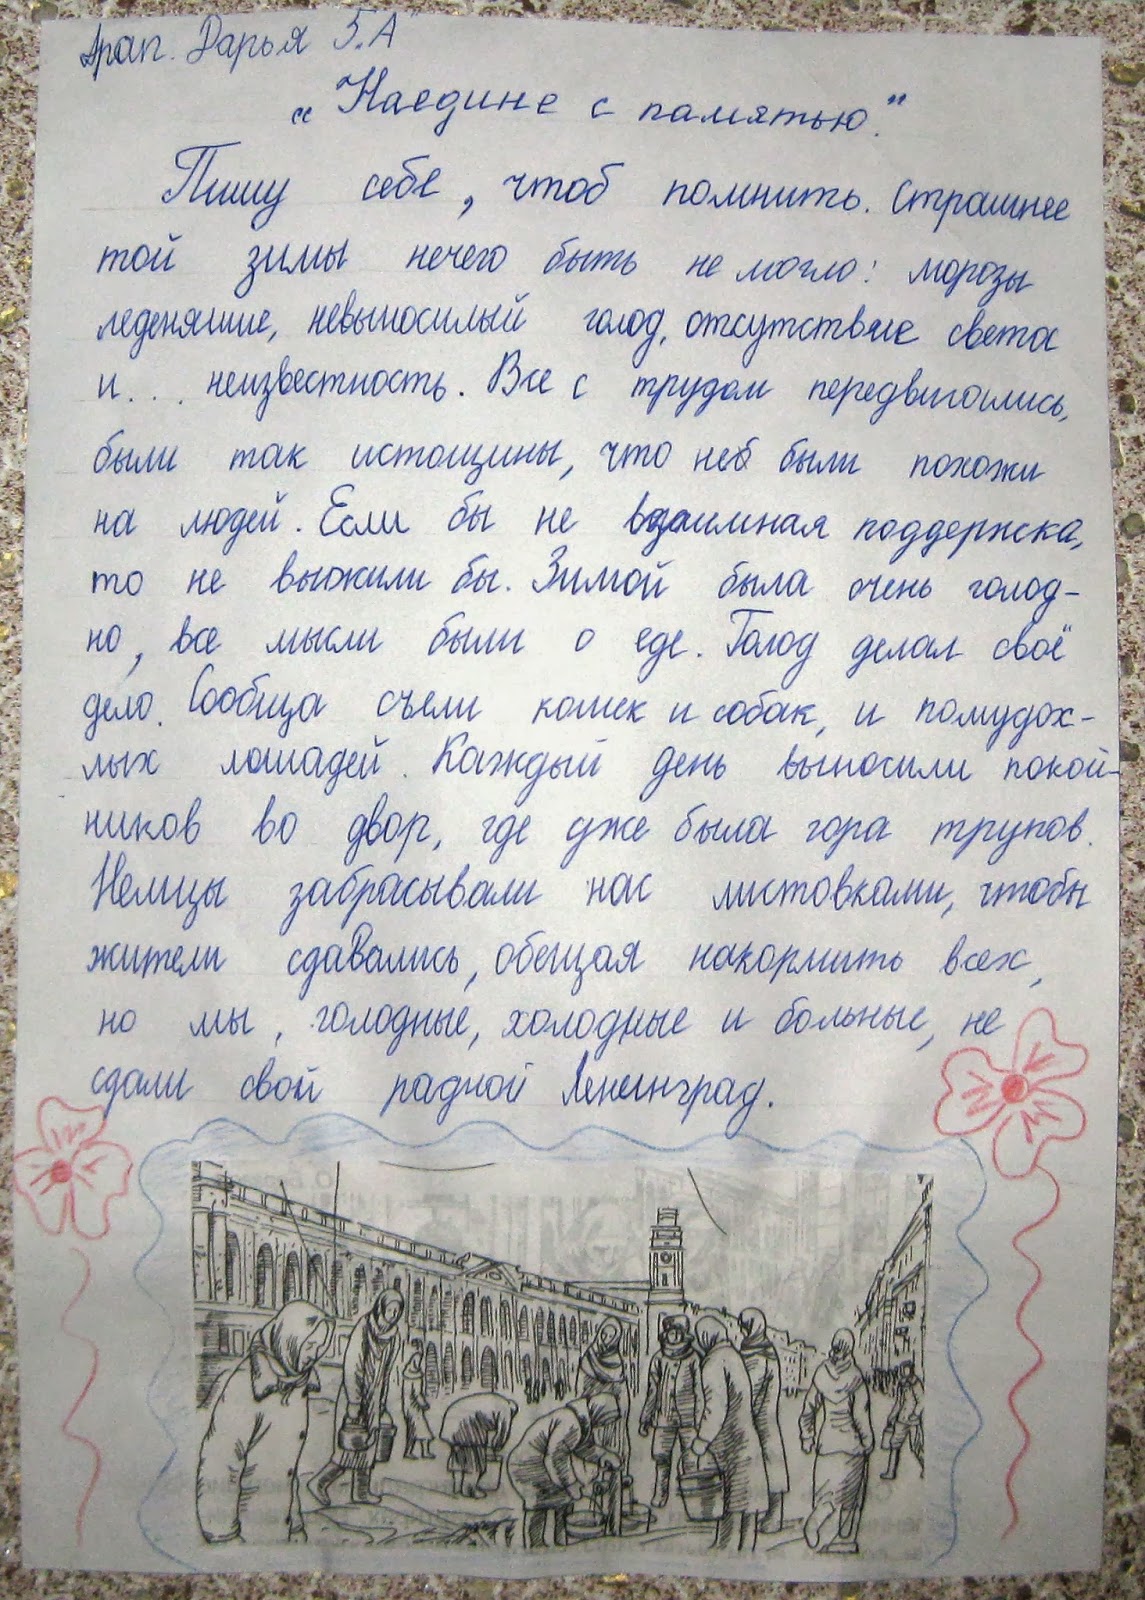 Драп. Дарья 5„А"
„Наедине с памятью."
Пишу себе, чтоб помнить. Страшнее
той зимы нечего быть не могло: морозы
леденящие, невыносимый голод, отсутствие света
и... неизвестность. Все с трудом передвигались,
были так истощины, что не были похожи
на людей. Если бы не взаимная поддержка,
то не выжили бы. Зимой было очень голод-
но, все мысли были о еде. Голод делал своё
дело. Сообща съели кошек и собак, и полудох-
лых лошадей. Каждый день выносили покой-
ников во двор, где уже была гора трупов.
Немцы забрасывали нас листовками, чтобы
жители сдавались, обещая накормить всех,
но мы, голодные, холодные и больные, не
сдали свой радной Ленинград.